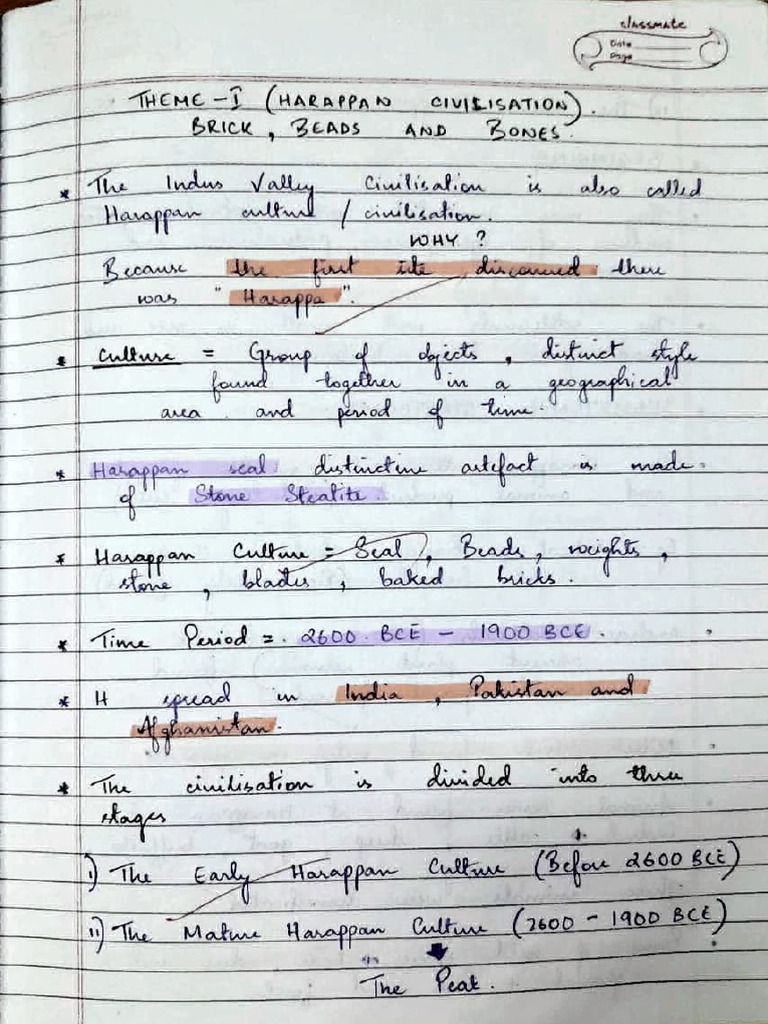 classmate
Date
Page
THEME-I (HARAPPAN CIVILISATION).
BRICK, BEADS AND BONES.
* The Indus Valley Civilisation is also called
Harappan culture / civilisation.
WHY ?
Because the first site discovered there
was "Harappa".
* Culture = Group of objects, distinct style
found together in a geographical
area and period of time.
* Harappan seal distinctive artefact is made
of Stone Steatite.
* Harappan Culture = Seal, Beads, weights,
stone, blades, baked bricks.
* Time Period = 2600 BCE - 1900 BCE.
* It spread in India, Pakistan and
Afghanistan.
* The civilisation is divided into three
stages
i) The Early Harappan Culture (Before 2600 BCE)
ii) The Mature Harappan Culture (2600 - 1900 BCE)
The Peak.